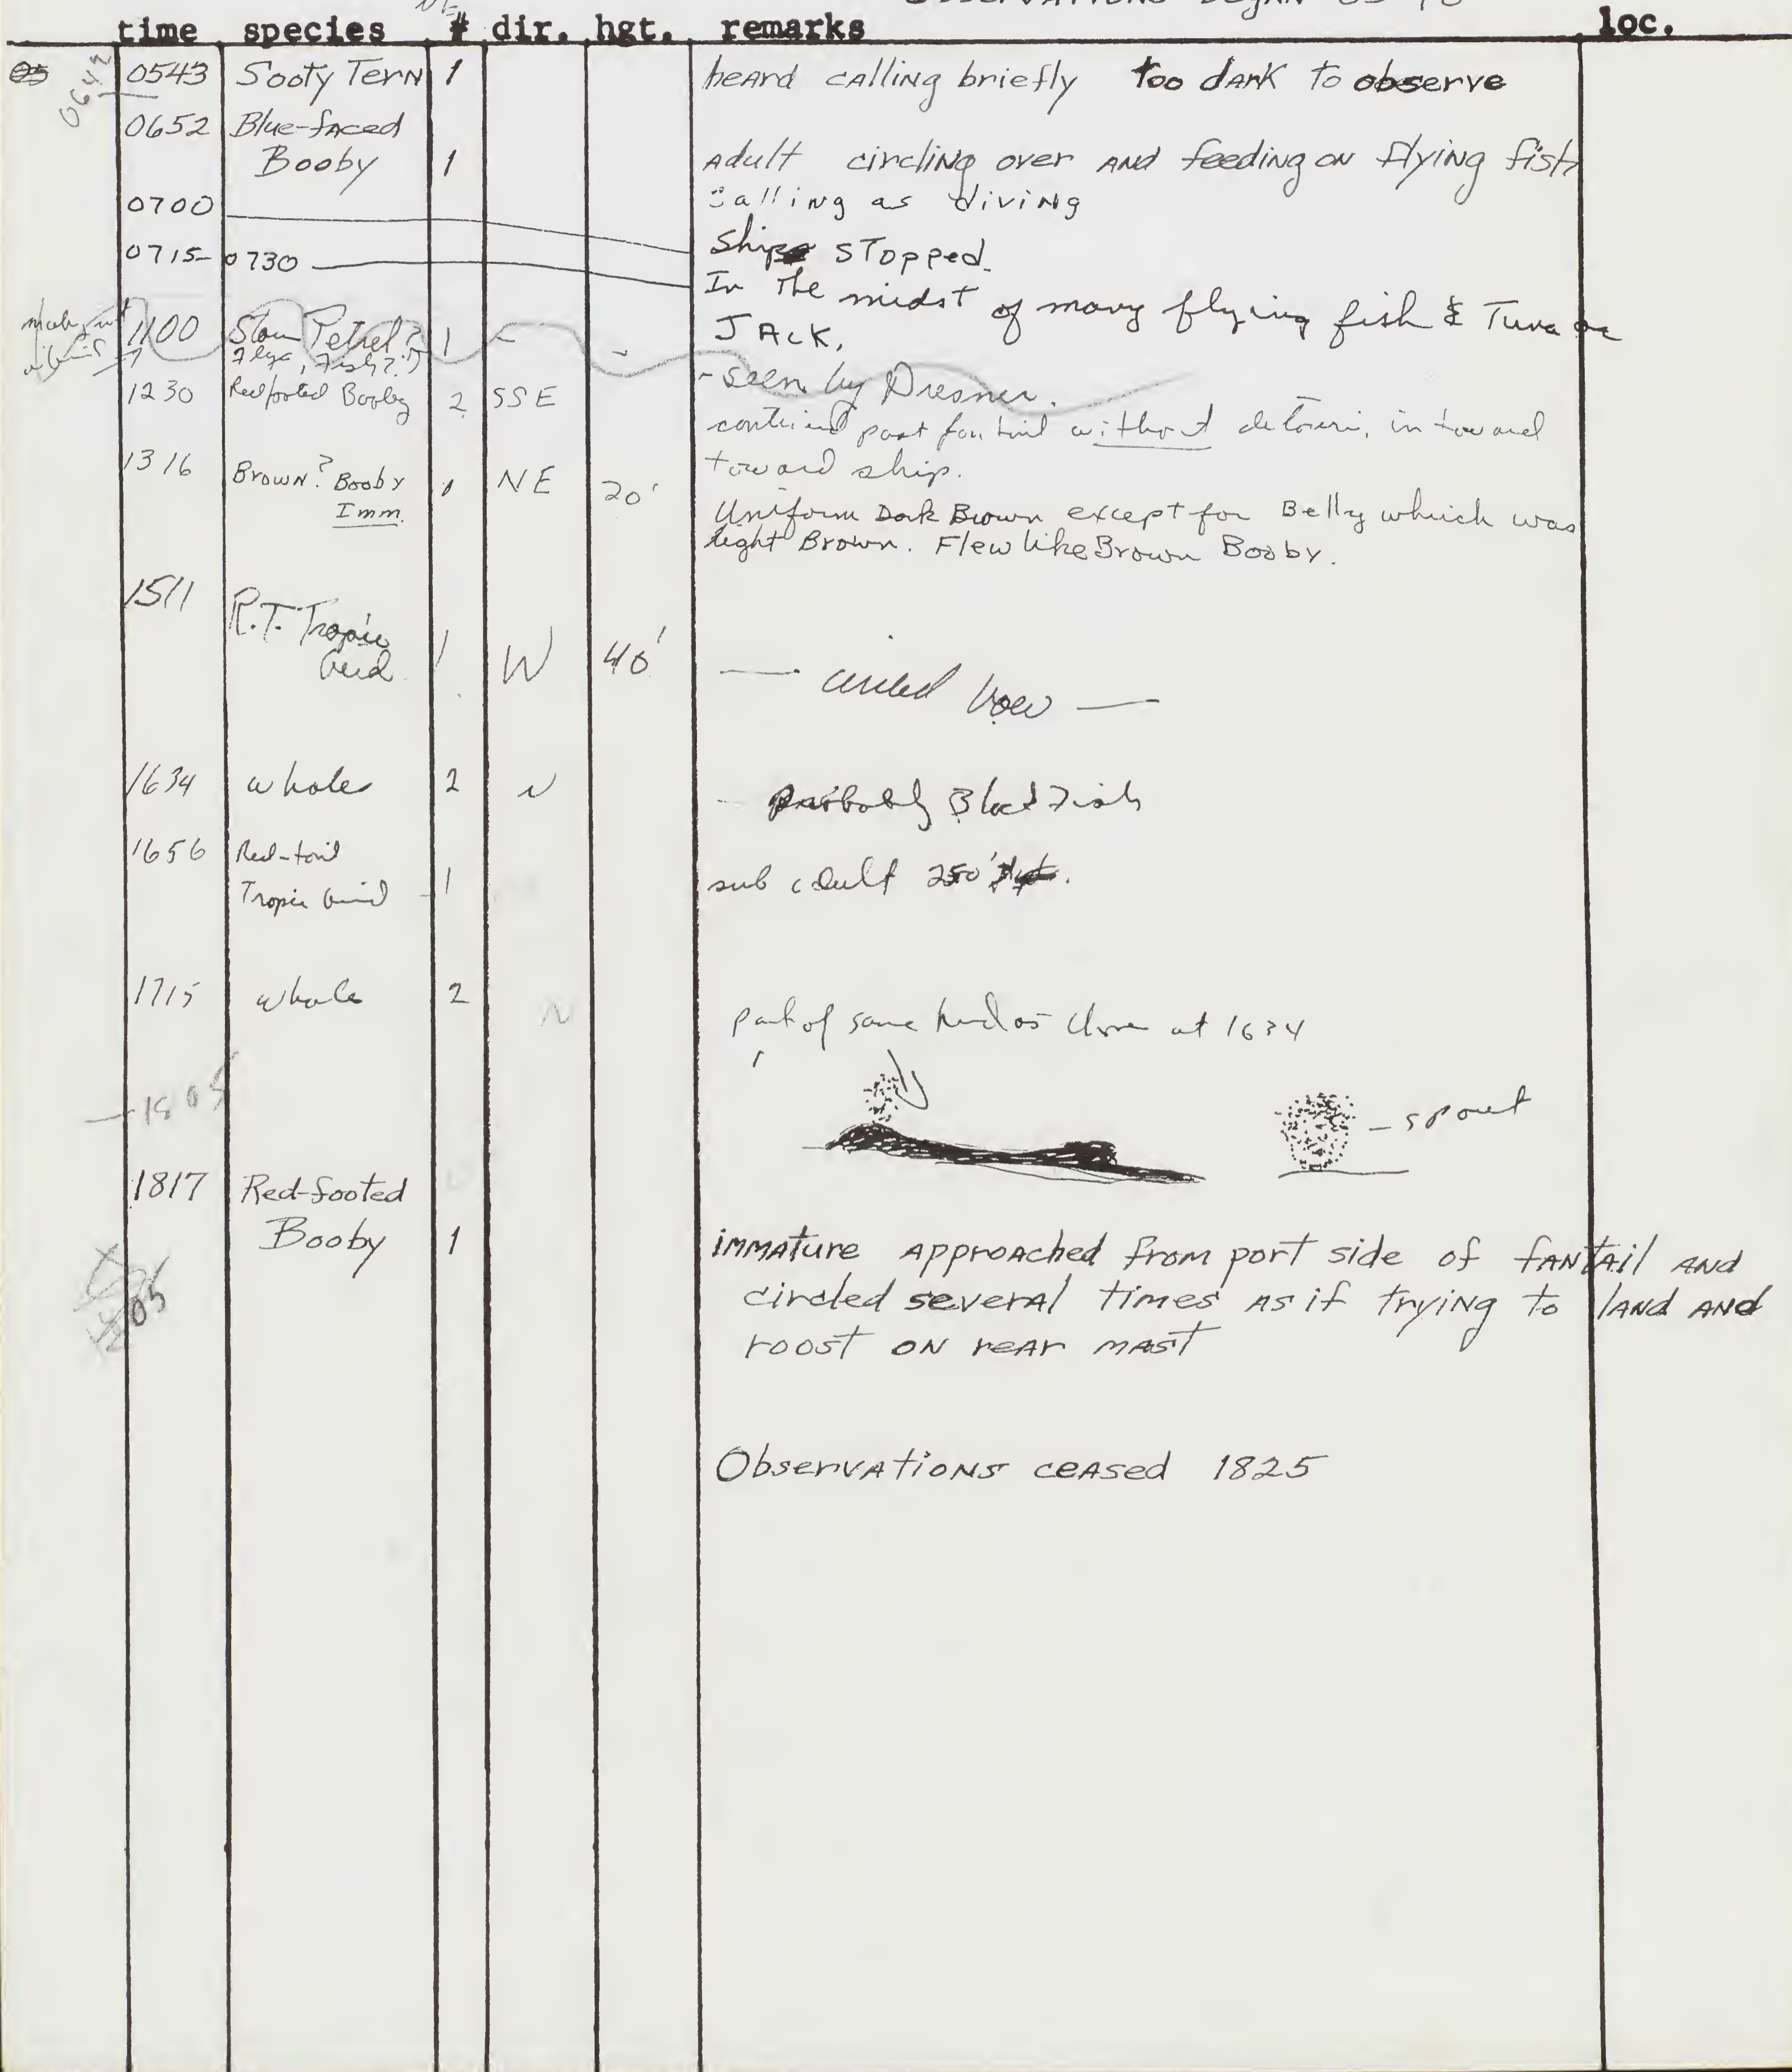 Observations began
time species # dir. hgt. remarks loc.
0543 Sooty Tern 1 heard calling briefly too dark to observe
0652 Blue-faced
Booby 1 adult circling over and feeding on flying fish
calling as diving
0700 Ship stopped.
0715-0730 In the midst of many flying fish & Tuna or
Jack.
1100 Storm Petrel? 1 - - - seen by Dresner.
Flying Fish??
1230 Redfooted Booby 2 SSE past fantail without detour, in toward
toward ship.
1316 Brown? Booby 1 NE 20' Uniform Dark Brown except for Belly which was
Imm. light Brown. Flew like Brown Booby.
1511 R.T. Tropic
bird 1 W 40' — circled bow —
1634 whale 2 N - probably Blackfish
1656 Red-tail
Tropic bird 1 sub adult 250'
1715 whale 2 N part of same herd as above at 1634
— 1805
- spout
1817 Red-footed
Booby 1 immature approached from port side of fantail and
circled several times as if trying to land and
roost on rear mast
Observations ceased 1825